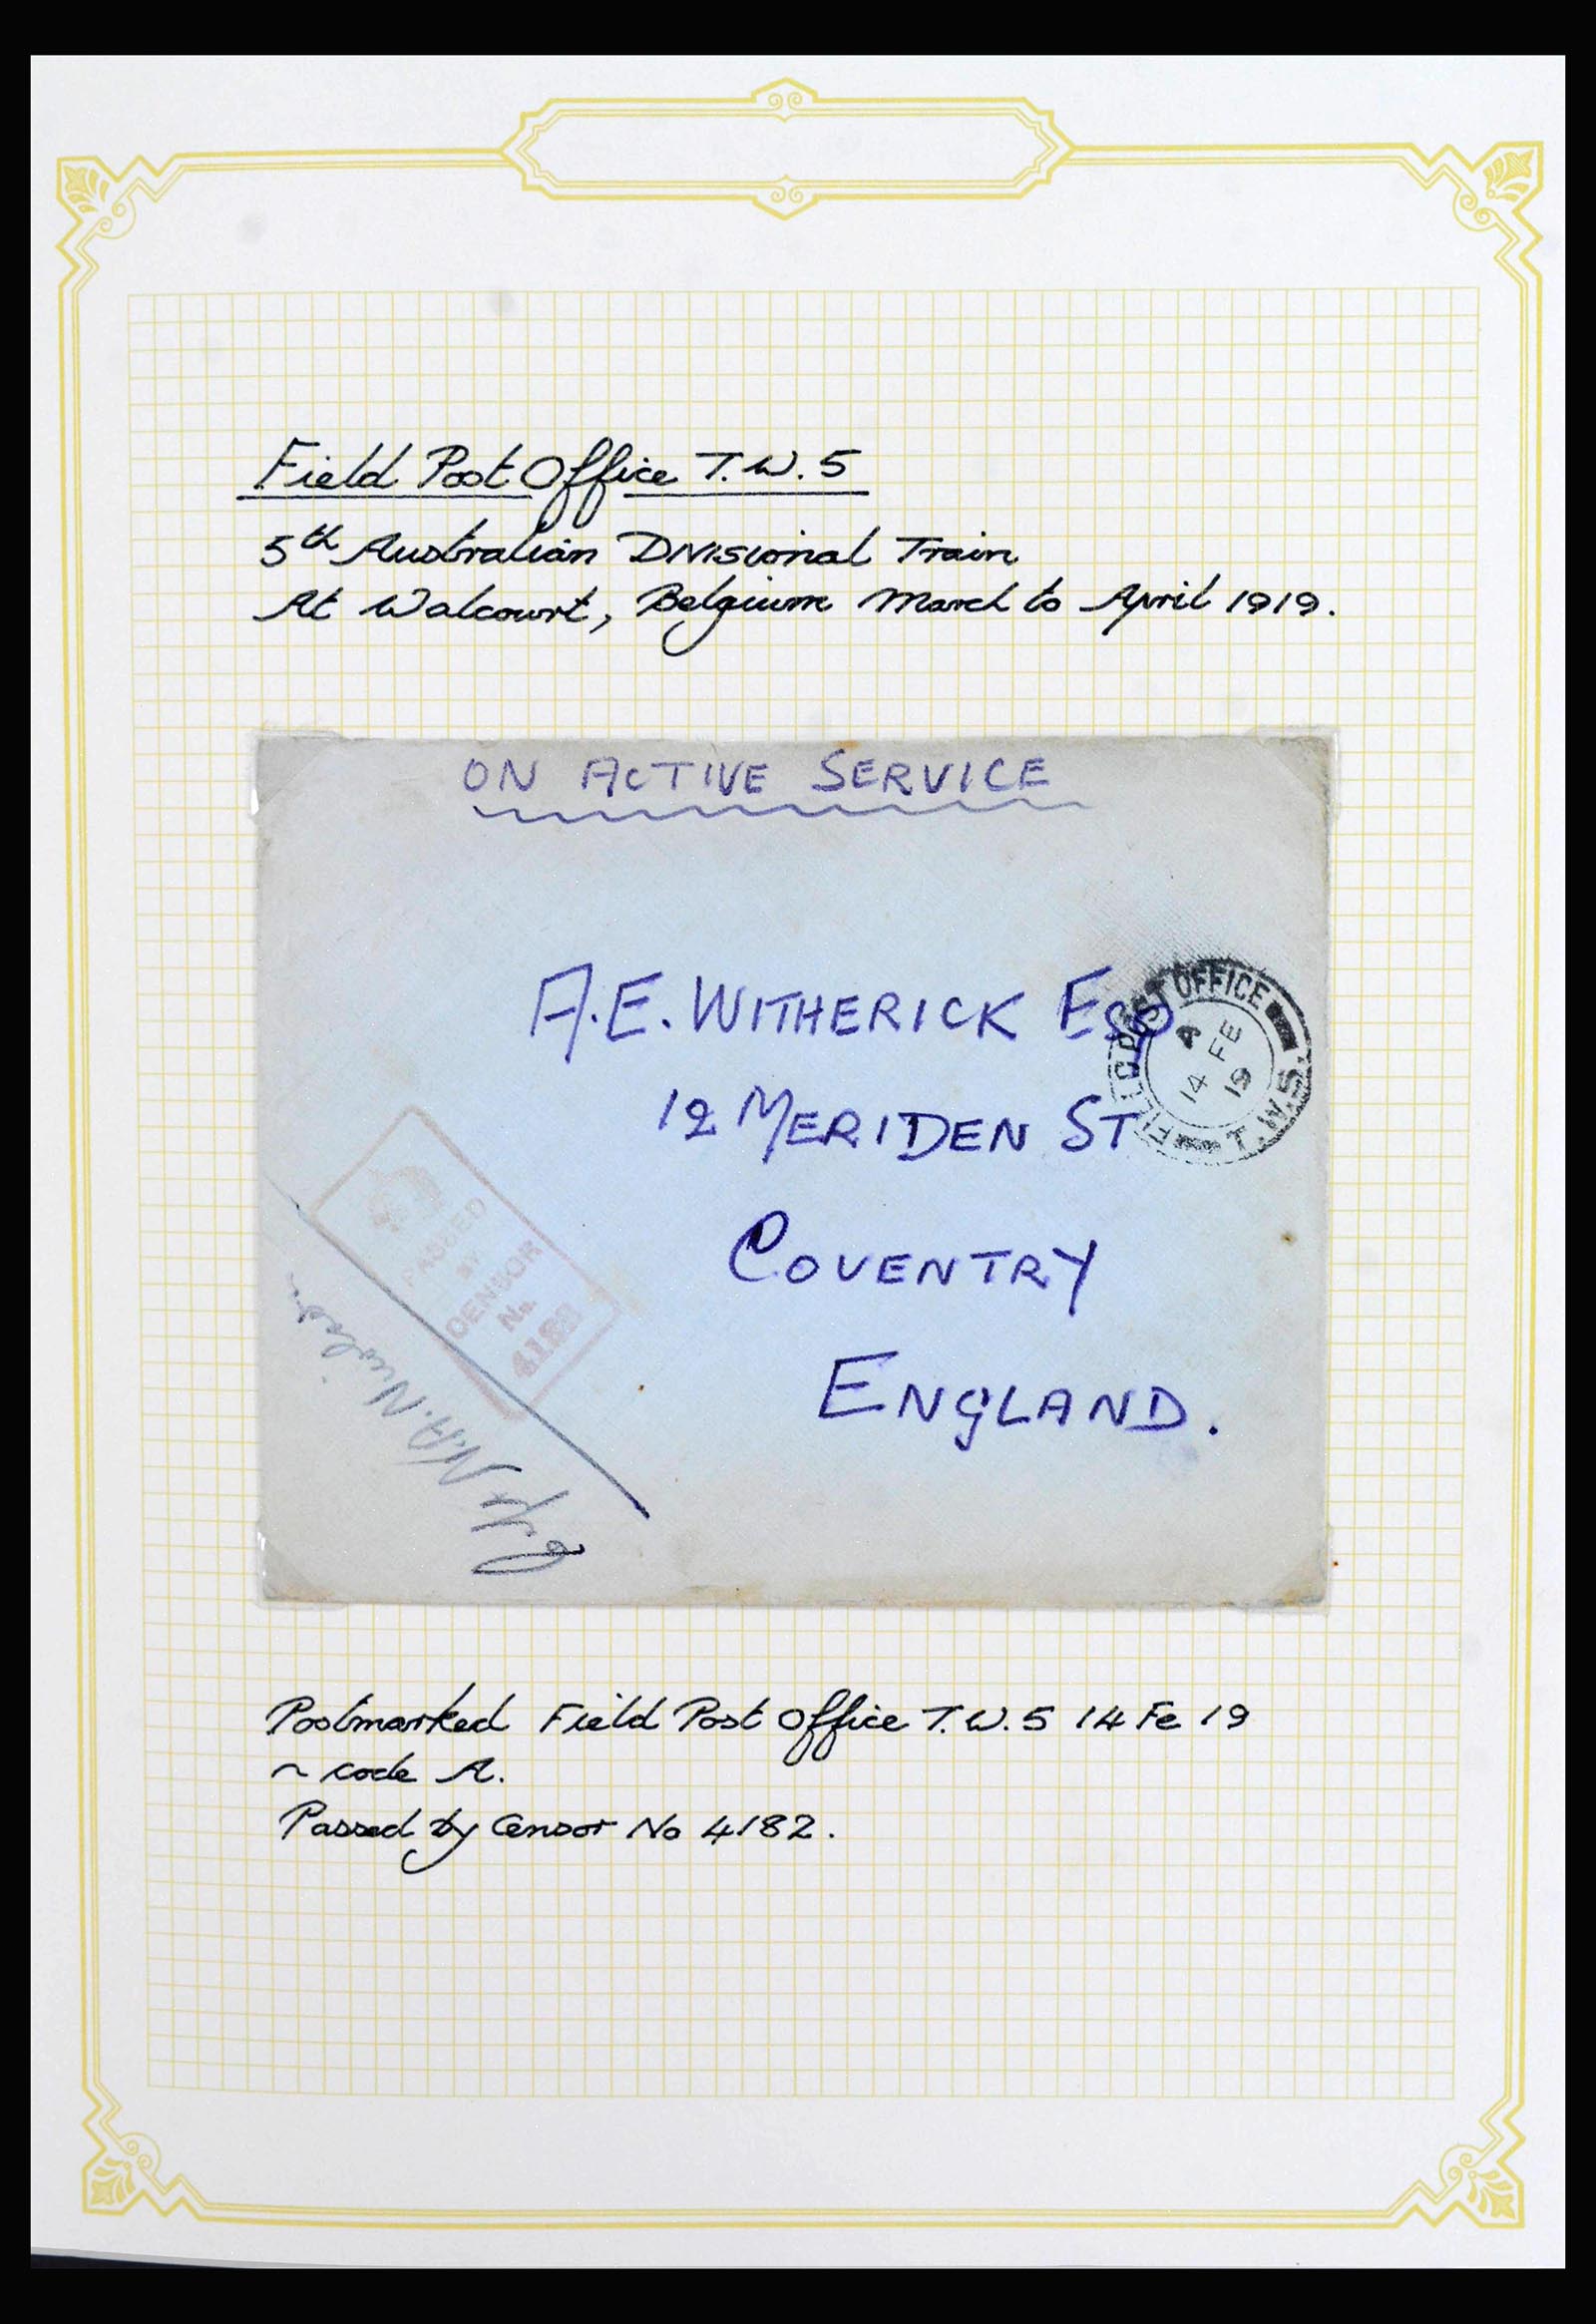 Field Post Office T.W.5
5th Australian Divisional Train
At Walcourt, Belgium March to April 1919.
ON ACTIVE SERVICE
A.E. WITHERICK ESQ
12 MERIDEN ST
COVENTRY
ENGLAND.
FIELD POST OFFICE
A
14 FE
19
T.W.5.
PASSED
BY
CENSOR
No.
N.A.
Postmarked Field Post Office T.W.5 14 Fe 19
~ code A.
Passed by Censor No 4182.